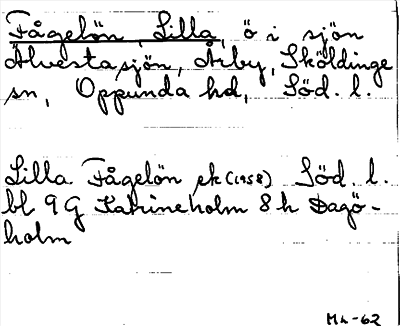 Fågelön, Lilla, ö i sjön
Älvestasjön, Årby, Sköldinge
sn, Oppunda hd, Söd. l.
Lilla Fågelön ek (1958) Söd. l.
bl 9 G Katrineholm 8 h Dagö-
holm
Mh-62